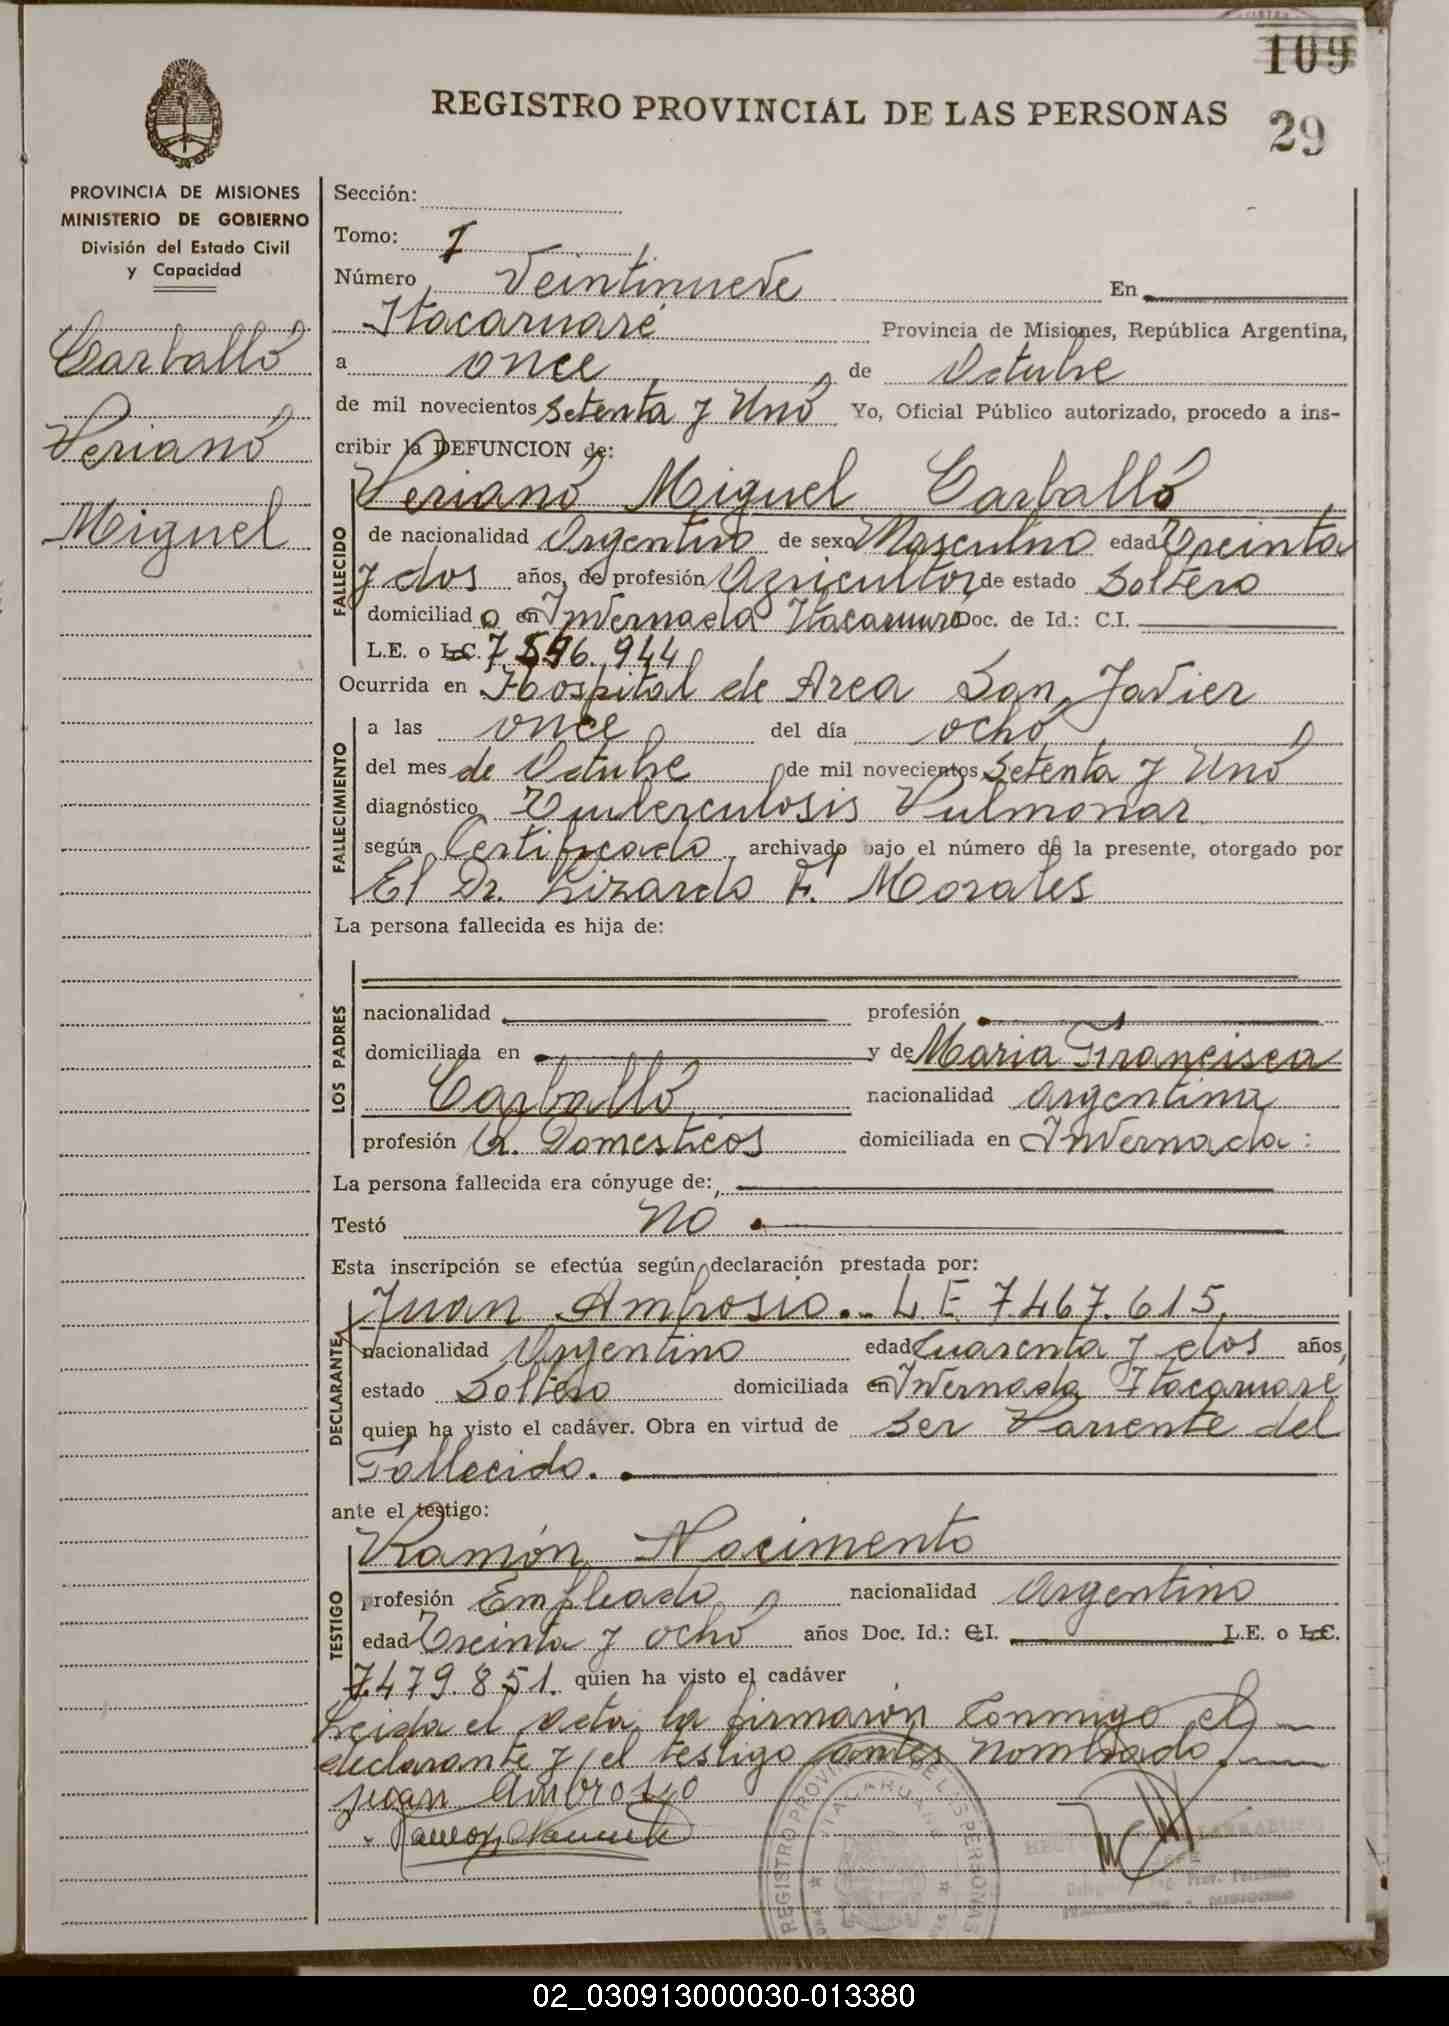 109
29
REGISTRO PROVINCIAL DE LAS PERSONAS
PROVINCIA DE MISIONES
MINISTERIO DE GOBIERNO
División del Estado Civil
y Capacidad
Carballó
Verianó
Miguel
Sección:
Tomo: I
Número Veintinueve En
Itacaruaré Provincia de Misiones, República Argentina,
a once de Octubre
de mil novecientos Setenta y Unó Yo, Oficial Público autorizado, procedo a ins-
cribir la DEFUNCION de:
Verianó Miguel Carballó
FALLECIDO
de nacionalidad Argentino de sexo Masculino edad Treinta
y dos años, de profesión Agricultor de estado Soltero
domiciliado en Invernada Itacaruare Doc. de Id.: C.I.
L.E. o L.C. 7.596.944
Ocurrida en Hospital de Area San Javier
FALLECIMIENTO
a las once del día ochó
del mes de Octubre de mil novecientos Setenta y Unó
diagnóstico Tuberculosis Pulmonar
según Certificado archivado bajo el número de la presente, otorgado por
El Dr. Lizardo F. Morales
La persona fallecida es hija de:
LOS PADRES
nacionalidad profesión
domiciliada en y de Maria Francisca
Carballó nacionalidad argentina
profesión Q. Domesticos domiciliada en Invernada:
La persona fallecida era cónyuge de:
Testó No
Esta inscripción se efectúa según declaración prestada por:
DECLARANTE
Juan Ambrosio. L E 7.467.615
nacionalidad Argentino edad Cuarenta y dos años,
estado Soltero domiciliada en Invernada Itacaruare
quien ha visto el cadáver. Obra en virtud de Ser Pariente del
Fallecido.
ante el testigo:
TESTIGO
Ramón Nacimento
profesión Empleado nacionalidad Argentino
edad Treinta y ochó años Doc. Id.: C.I. L.E. o L.C.
7.479.851. quien ha visto el cadáver
Leida el acta, la firmarón Conmigo el
declarante y el testigo antes nombrado.
juan Ambrosio
REGISTRO PROVINCIAL DE LAS PERSONAS
ITACARUARE
02_030913000030-013380